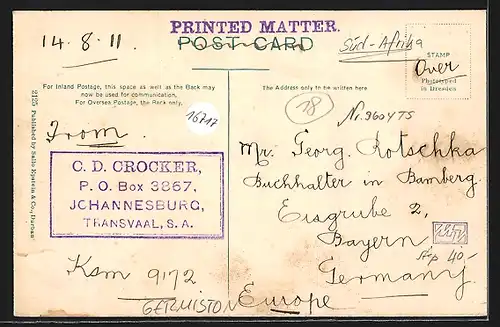 PRINTED MATTER.
14.8.11
POST CARD
Süd-Afrika
STAMP
Over
Phototyped
in Dresden
For Inland Postage, this space as well as the Back may
now be used for communication.
For Oversea Postage, the Back only.
The Address only to be written here
16717
18
Nr. 9604TS
2125 Published by Sallo Epstein & Co., Durban
From.
C. D. CROCKER,
P. O. BOX 3867,
JOHANNESBURG,
TRANSVAAL, S. A.
Mr. Georg. Rotschka
Buchhalter in Bamberg.
Eisgrube 2,
Bayern
40-
Germany
Europe
Ksm 9172
GERMISTON